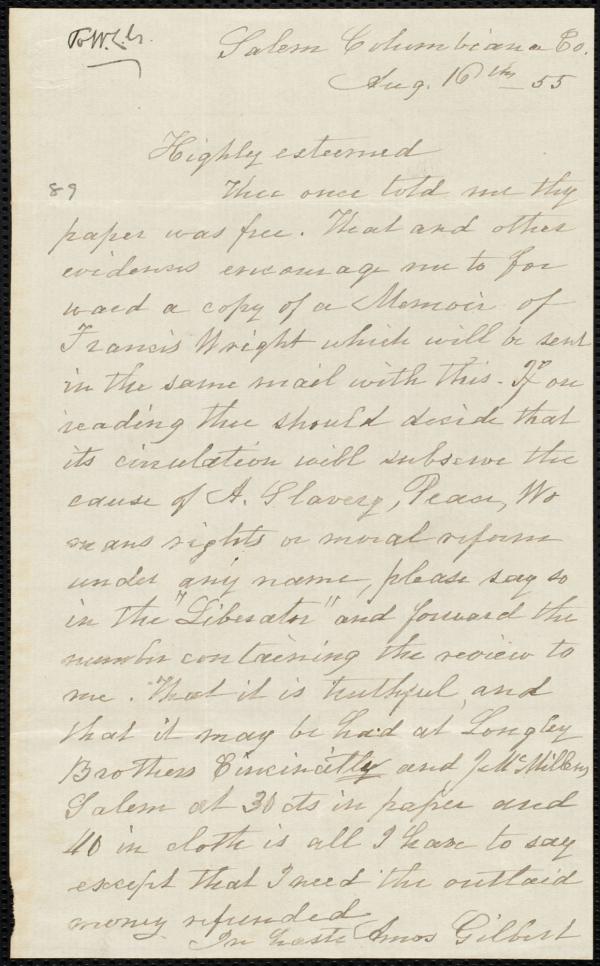 To W.L.G.
Salem Columbiana Co.
Aug. 16th 55
Highly esteemed
89
Thee once told me thy
paper was free. That and other
evidences encourage me to for
ward a copy of a Memoir of
Francis Wright which will be sent
in the same mail with this. If on
reading thee should decide that
its circulation will subserve the
cause of A. Slavery, Peace, Wo
mans rights or moral reform
under any name, please say so
in the "Liberator" and forward the
number containing the review to
me. That it is truthful, and
that it may be had at Longley
Brothers Cincinatty and J. McMillens
Salem at 30 cts in paper and
40 in cloth is all I have to say
except that I need the outlaid
money refunded
In haste Amos Gilbert